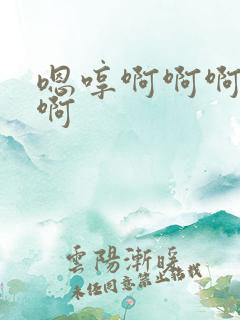 嗯哼啊啊啊
啊
雲陽漸暖
未经同意禁止转载